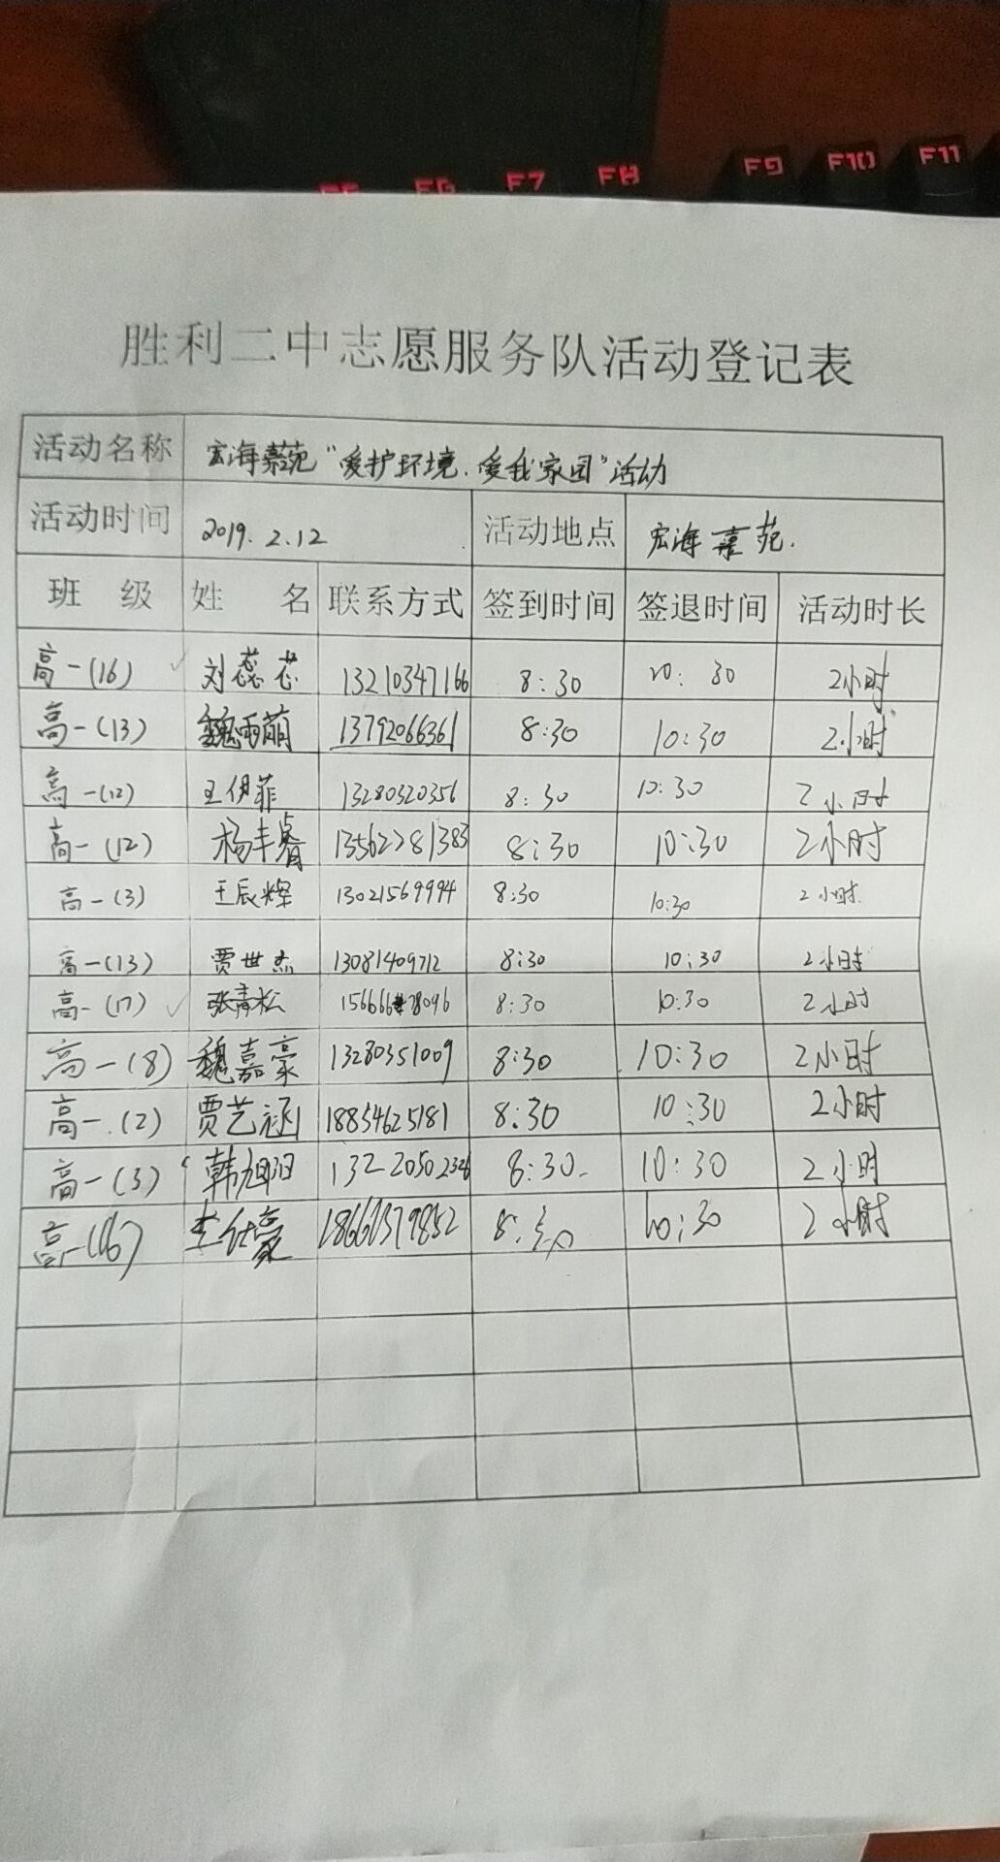 F5 F6 F7 F8 F9 F10 F11
胜利二中志愿服务队活动登记表
活动名称 宏海嘉苑“爱护环境.爱我家园”活动
活动时间 2019.2.12 活动地点 宏海嘉苑.
班 级 姓 名 联系方式 签到时间 签退时间 活动时长
高一(16) 刘蕊芯 13210347166 8:30 10:30 2小时
高一(13) 魏雨萌 13792066361 8:30 10:30 2小时
高一(12) 王伊菲 13280320356 8:30 10:30 2小时
高一(12) 杨丰睿 13562281383 8:30 10:30 2小时
高一(3) 王辰辉 13021569994 8:30 10:30 2小时.
高一(13) 贾世杰 13081409712 8:30 10:30 2小时
高一(17) 张青松 8:30 10:30 2小时
高一(8) 魏嘉豪 13280351009 8:30 10:30 2小时
高一.(2) 贾艺涵 18854625181 8:30 10:30 2小时
高一(3) 韩旭阳 13220502326 8:30 10:30 2小时
高一(16) 李仕豪 8:30 10:30 2小时